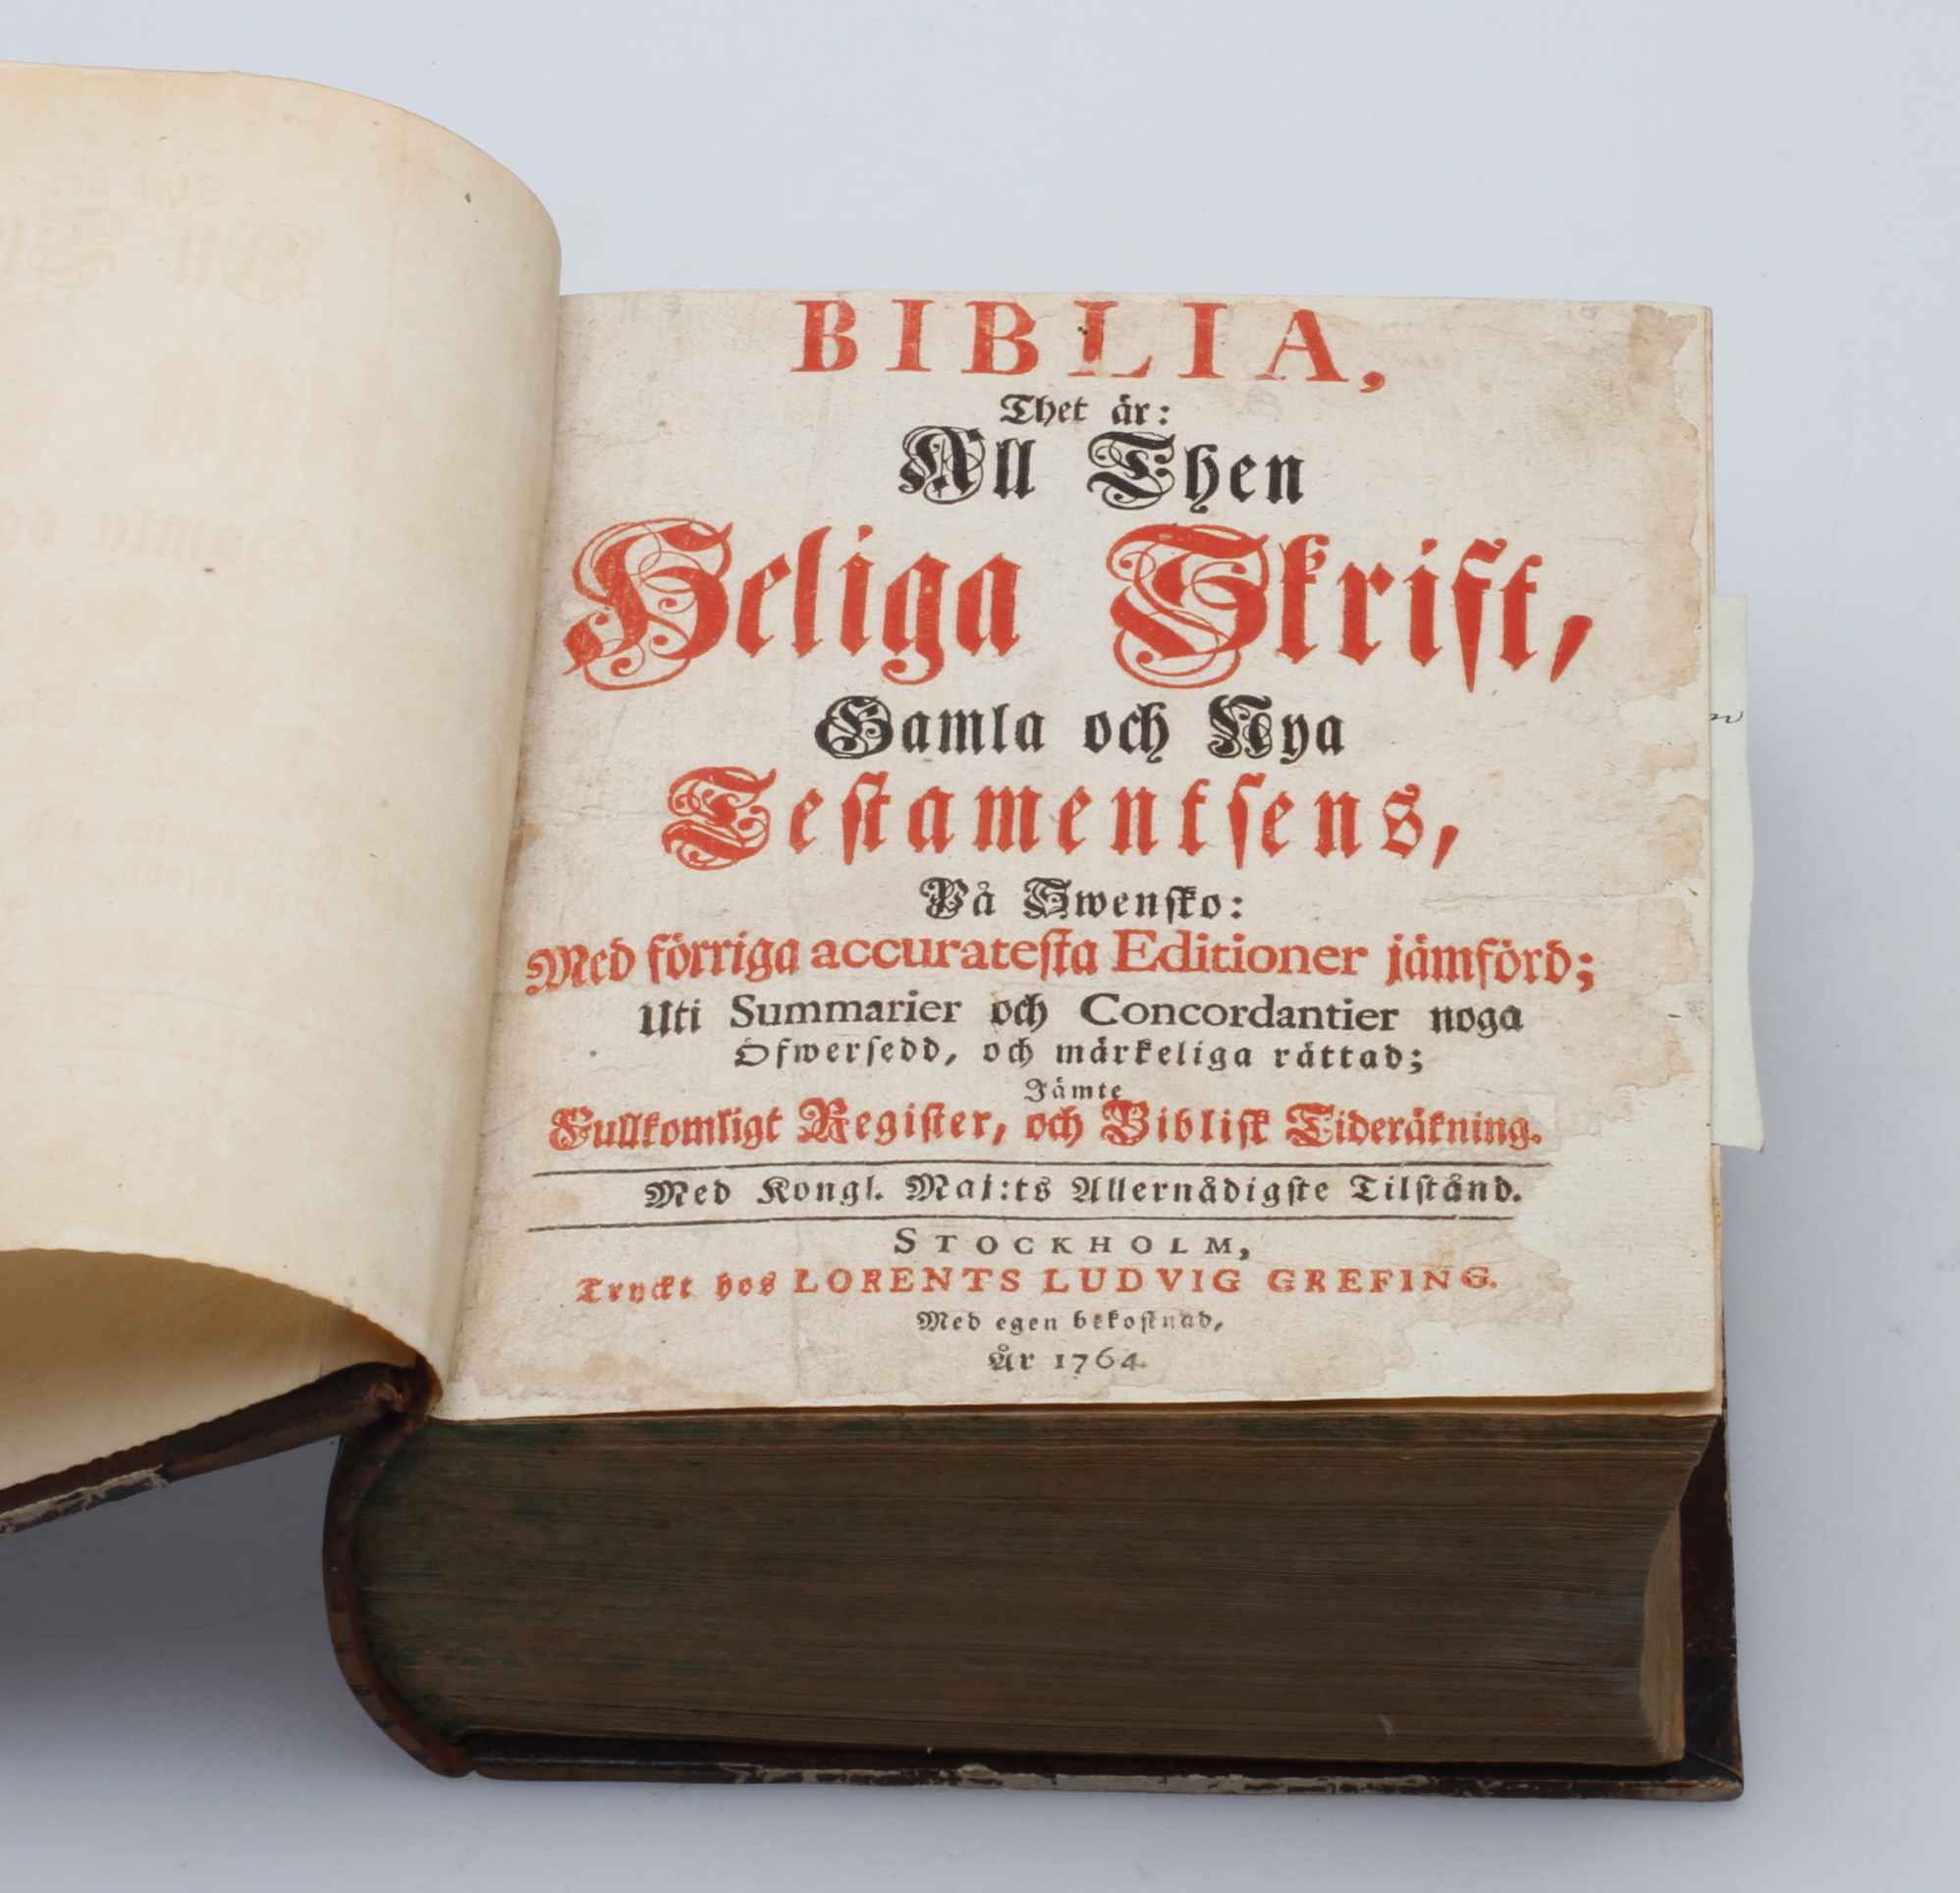 BIBLIA,
Thet är:
All Then
Heliga Skrift,
Gamla och Nya
Testamentsens,
På Swensko:
Med förriga accuratesta Editioner jämförd;
Uti Summarier och Concordantier noga
Öfwersedd, och märkeliga rättad;
Jämte
Fullkomligt Register, och Biblisk Tideräkning.
Med Kongl. Maj:ts Allernådigste Tilstånd.
STOCKHOLM,
Tryckt hos LORENTS LUDVIG GREFING.
Med egen bekostnad,
År 1764.